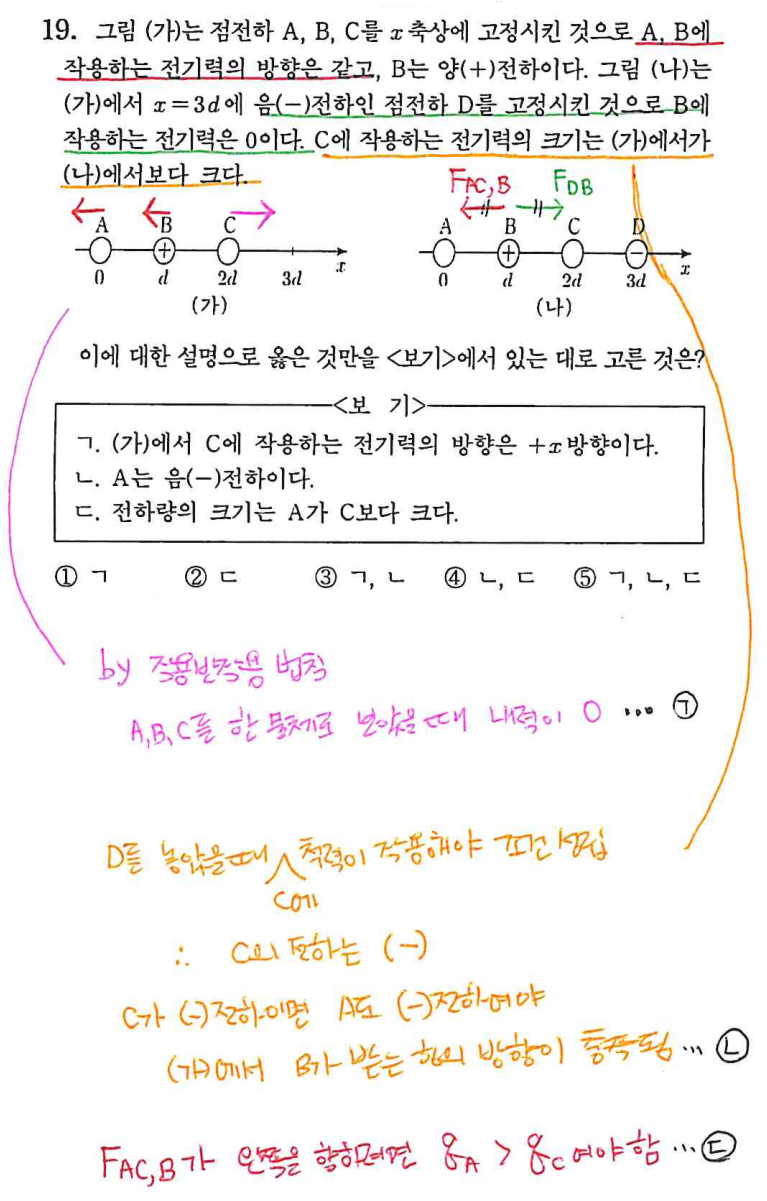 19. 그림 (가)는 점전하 A, B, C를 x축상에 고정시킨 것으로 A, B에
작용하는 전기력의 방향은 같고, B는 양(+)전하이다. 그림 (나)는
(가)에서 x=3d에 음(-)전하인 점전하 D를 고정시킨 것으로 B에
작용하는 전기력은 0이다. C에 작용하는 전기력의 크기는 (가)에서가
(나)에서보다 크다.
F_{AC,B} F_{DB}
A B C A B C D
+ + -
0 d 2d 3d x 0 d 2d 3d x
(가) (나)
이에 대한 설명으로 옳은 것만을 <보기>에서 있는 대로 고른 것은?
<보 기>
ㄱ. (가)에서 C에 작용하는 전기력의 방향은 +x방향이다.
ㄴ. A는 음(-)전하이다.
ㄷ. 전하량의 크기는 A가 C보다 크다.
① ㄱ ② ㄷ ③ ㄱ, ㄴ ④ ㄴ, ㄷ ⑤ ㄱ, ㄴ, ㄷ
by 작용반작용 법칙
A,B,C를 한 물체로 보았을 때 내력이 0 … ㉠
D를 놓았을 때 C에 척력이 작용해야 조건 성립
∴ C의 전하는 (-)
C가 (-)전하이면 A도 (-)전하여야
(가)에서 B가 받는 힘의 방향이 충족됨 … ㉡
F_{AC,B}가 왼쪽을 향하려면 q_A > q_C여야 함 … ㉢